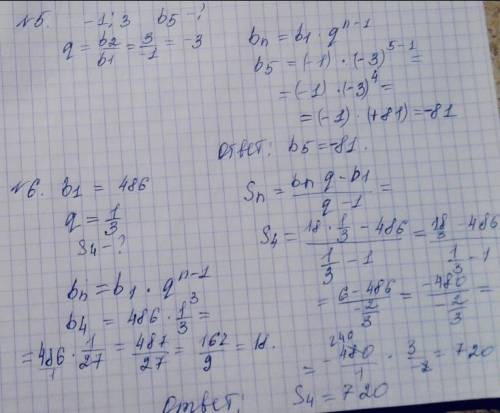 №5. -1; 3 b5 -?
q = b2/b1 = 3/-1 = -3
bn = b1 · q^(n-1)
b5 = (-1) · (-3)^(5-1) =
= (-1) · (-3)^4 =
= (-1) · (+81) = -81
Ответ: b5 = -81.
№6. b1 = 486
q = 1/3
S4 - ?
bn = b1 · q^(n-1)
b4 = 486 · 1/3^3 =
= 486/1 · 1/27 = 487/27 = 162/9 = 18.
Sn = (bn q - b1)/(q - 1) =
S4 = (18 · 1/3 - 486)/(1/3 - 1) = (18/3 - 486)/(1/3 - 1) =
= (6 - 486)/(-2/3) = (-480)/(-2/3) =
= - 480/1 · 3/2 = 720
240
Ответ: S4 = 720